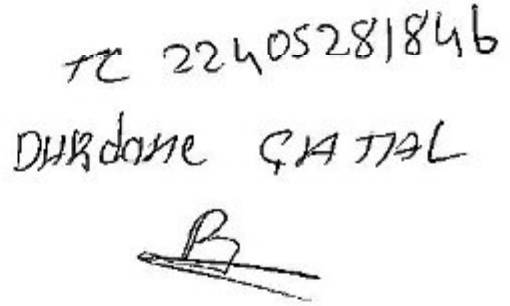 TC 22405281846
DURdane ÇATAL